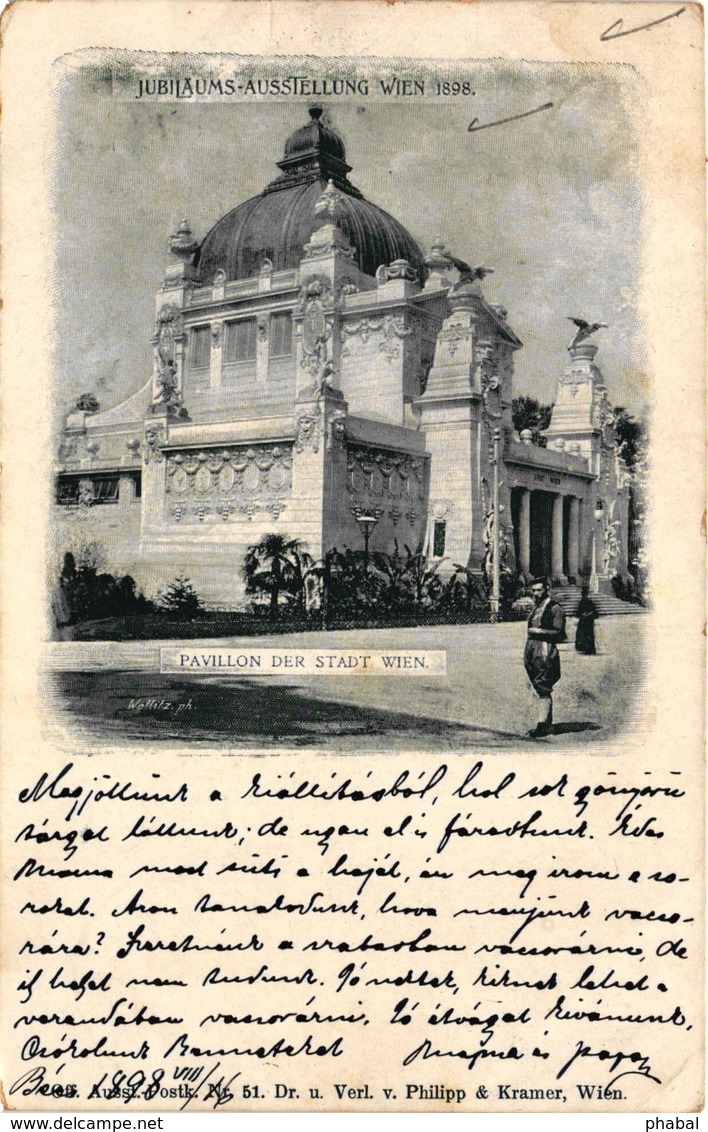 JUBILÄUMS-AUSSTELLUNG WIEN 1898.
STADT WIEN
PAVILLON DER STADT WIEN.
Wottitz. ph.
Megjöttünk a kiállításból, hol sok gönyörü
tárgat láttunk; de ugan el is fáradtunk. Édes
Mama most süti a haját, én meg irom a so-
rokat. Azon tanakodunk, hova menjünk vacso-
rára? Szeretnénk a szabadban vacsorázni, de
ij helyet nem tudunk. Jó nektek, kiknek lehet a
verandában vacsorázni. Jó étvágyat kivánunk,
Csókolunk Benneteket Mama és papa
Bécs 1898 VIII/16
Off. Ausst.-Postk. Nr. 51. Dr. u. Verl. v. Philipp & Kramer, Wien.
phabal